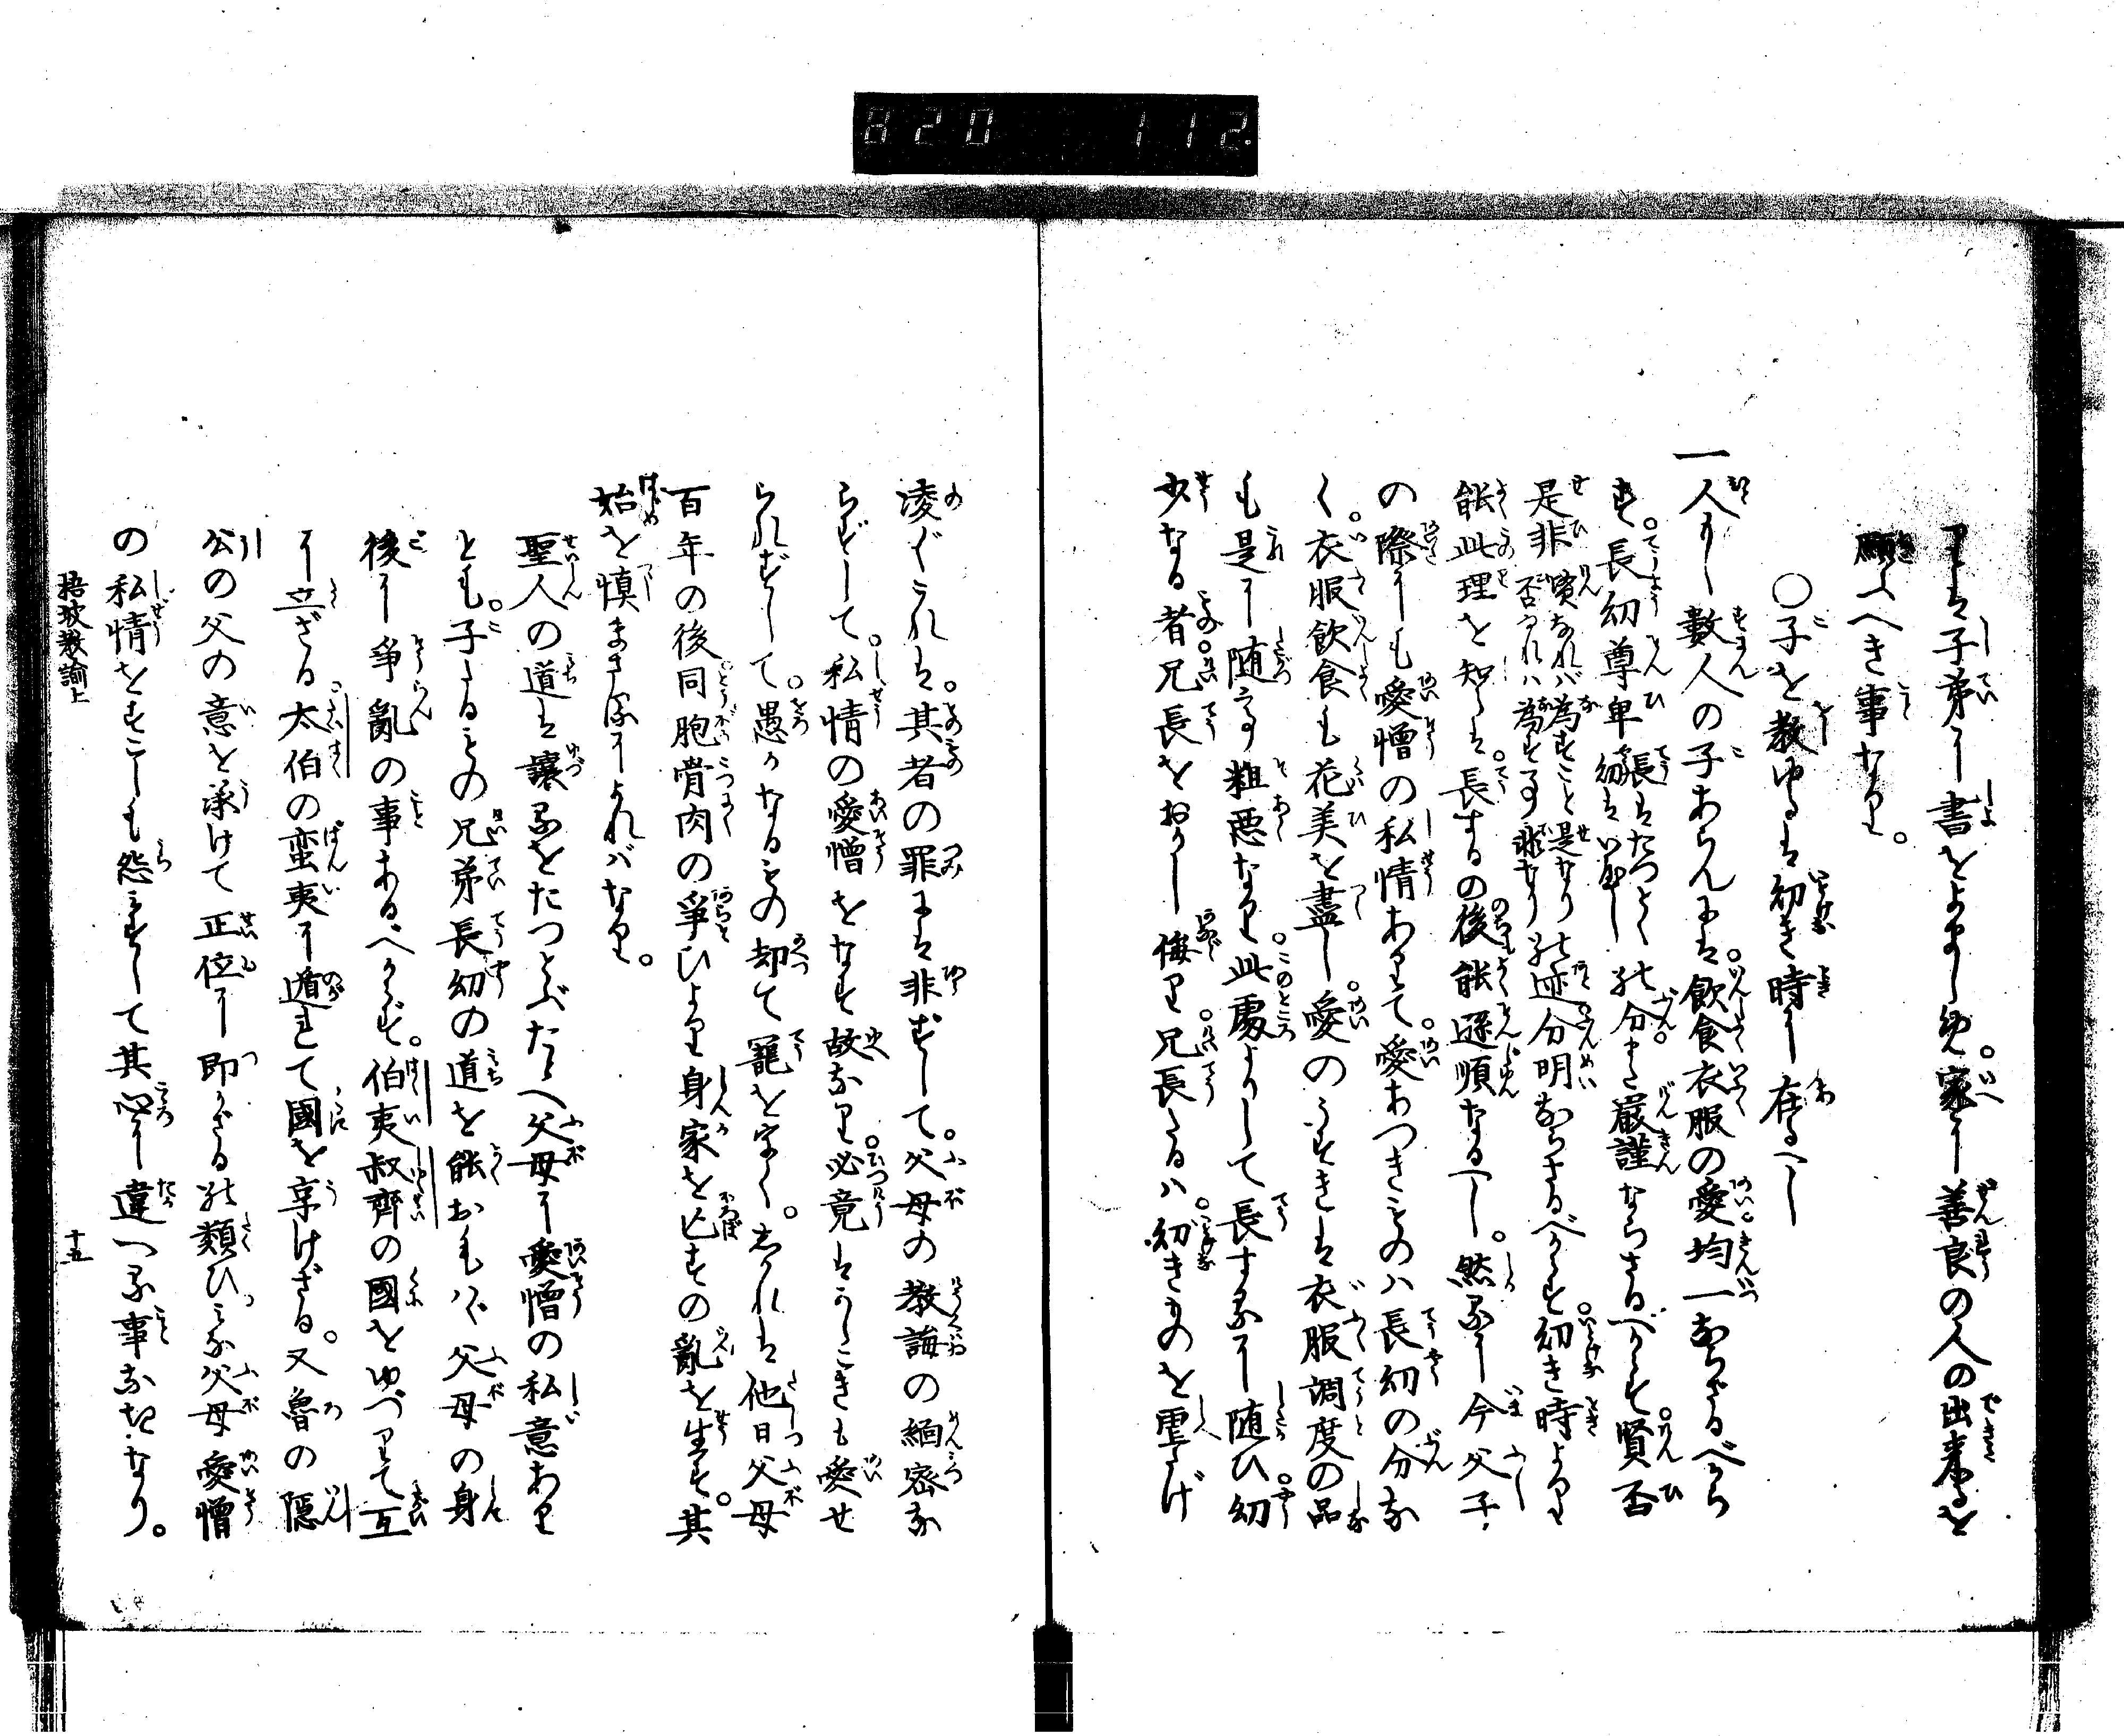 820 112.
りは子弟に書をよましめ。家に善良の人の出来るを
願ふへき事なり。
○子を教ゆるは幼き時に在るへし
一人にし數人の子あらんには。飲食衣服の愛均一ならざるべから
ず。長幼尊卑 長はたつとく幼はいやし の分は嚴謹ならさるべからず。賢否
是非 賢なれバ為すこと是なり否なれハ為する事非なり の迹。分明ならさるべからず。幼き時より
能此理を知らは。長するの後能遜順なるべし。然るに今父子
の際にしも愛憎の私情ありて。愛あつきものハ長幼の分な
く。衣服飲食も花美を盡し。愛のうすきは衣服調度の品
も是に随ひ粗惡なり。此處よりして長するに随ひ。幼
少なる者。兄長をおかし侮り。兄長たるハ。幼きものを虐げ
凌ぐこれは。其者の罪には非ずして。父母の教誨の緬密な
らずして。私情の愛憎をなす故なり。必竟はうときも愛せ
られずして。愚かなるもの却て寵を字く。しかれは他日父母
百年の後。同胞骨肉の爭ひより身家を亡すの亂を生ず。其
始を慎まさるによれバなり。
聖人の道は讓るをたつとぶたとへ父母に愛憎の私意あり
とも。子たるもの兄弟長幼の道を能おもハゞ父母の身
後に爭亂の事あるべからず。伯夷叔齊の國をゆづりて互
に立ざる。太伯の蛮夷に遁れて國を享けざる。又魯の隱
公の父の意を承けて正位に即かざる の類ひみな父母愛憎
の私情をすこしも怨みずして其心に違へる事なきなり。
捂坡教諭上
十五